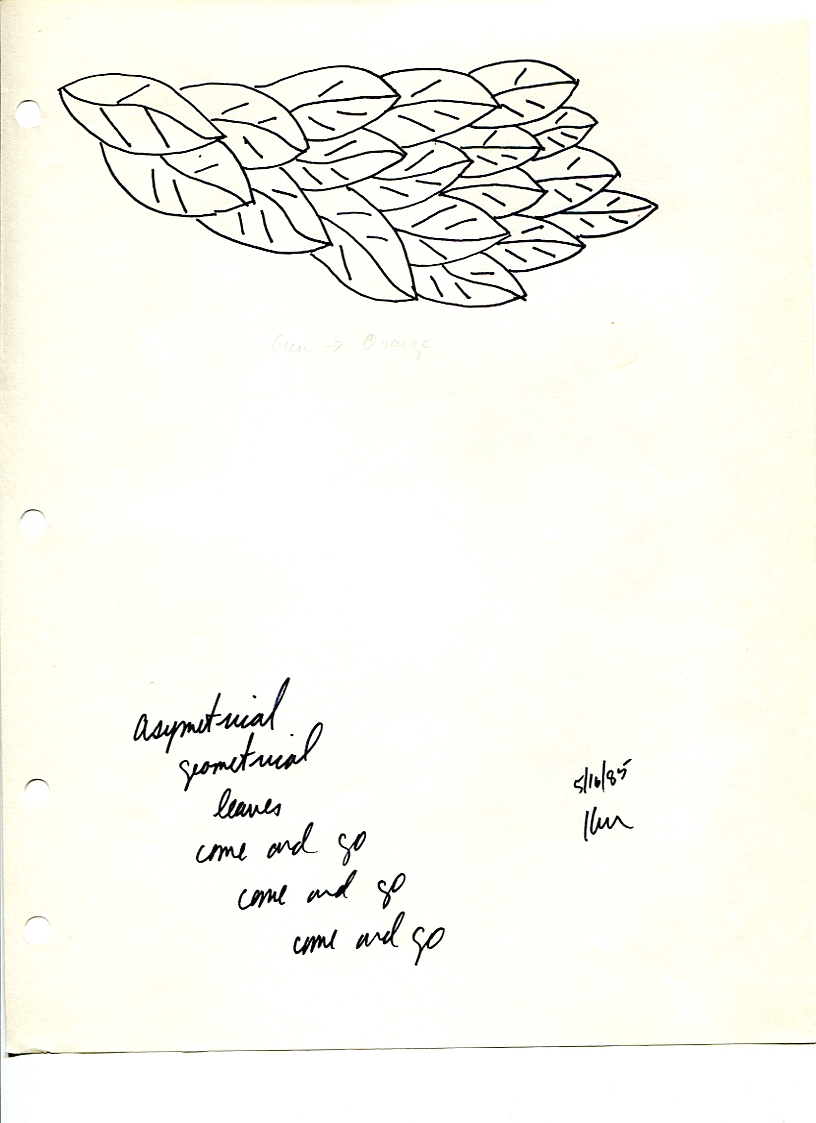 Green → Orange
asymetrical
geometrical
leaves
come and go
come and go
come and go
5/16/85